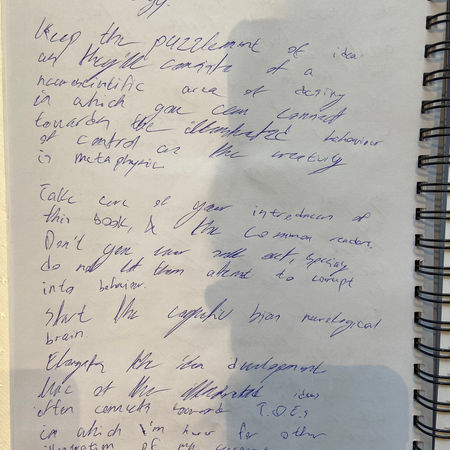 Keep the puzzlement of idea
as they'll consists of a
neuroscientific area of desing
in which you can connect
towards the illuminated behaviour
of control as the creativity
is metaphysic
Take care of your introducers of
this book, & the common readers.
Don't you ever out,
do not let them attempt to corrupt
into behaviour.
Start the cognitive bias neurological
brain.
the idea development
line of the ideas
often connects towards T.O.E.s
in which I'm for other
of my